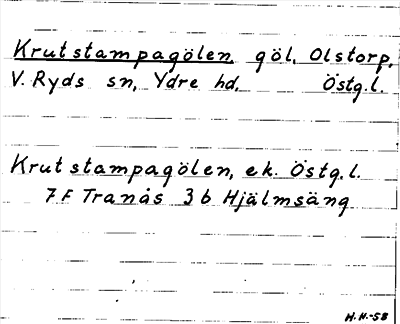 Krutstampagölen, göl, Olstorp,
V. Ryds sn, Ydre hd, Östg.l.
Krutstampagölen, ek. Östg.l.
7 F Tranås 3 b Hjälmsäng
H.H.-58